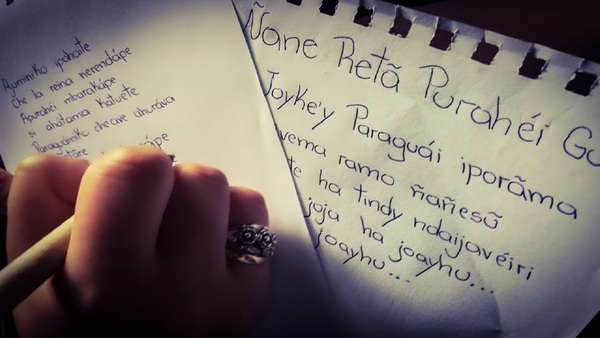 Ayminko ipohaite
che la reina nerendápe
Apurahéi mbarakápe
si ahátama katuete
Paraguáiniko cheave ahuráva
ápe
Ñane Retã Purahéi Gu
Joyke'y Paraguái iporãma
vema ramo ñañesũ
te ha tindy ndaijavéiri
joja ha joayhu...
joayhu...